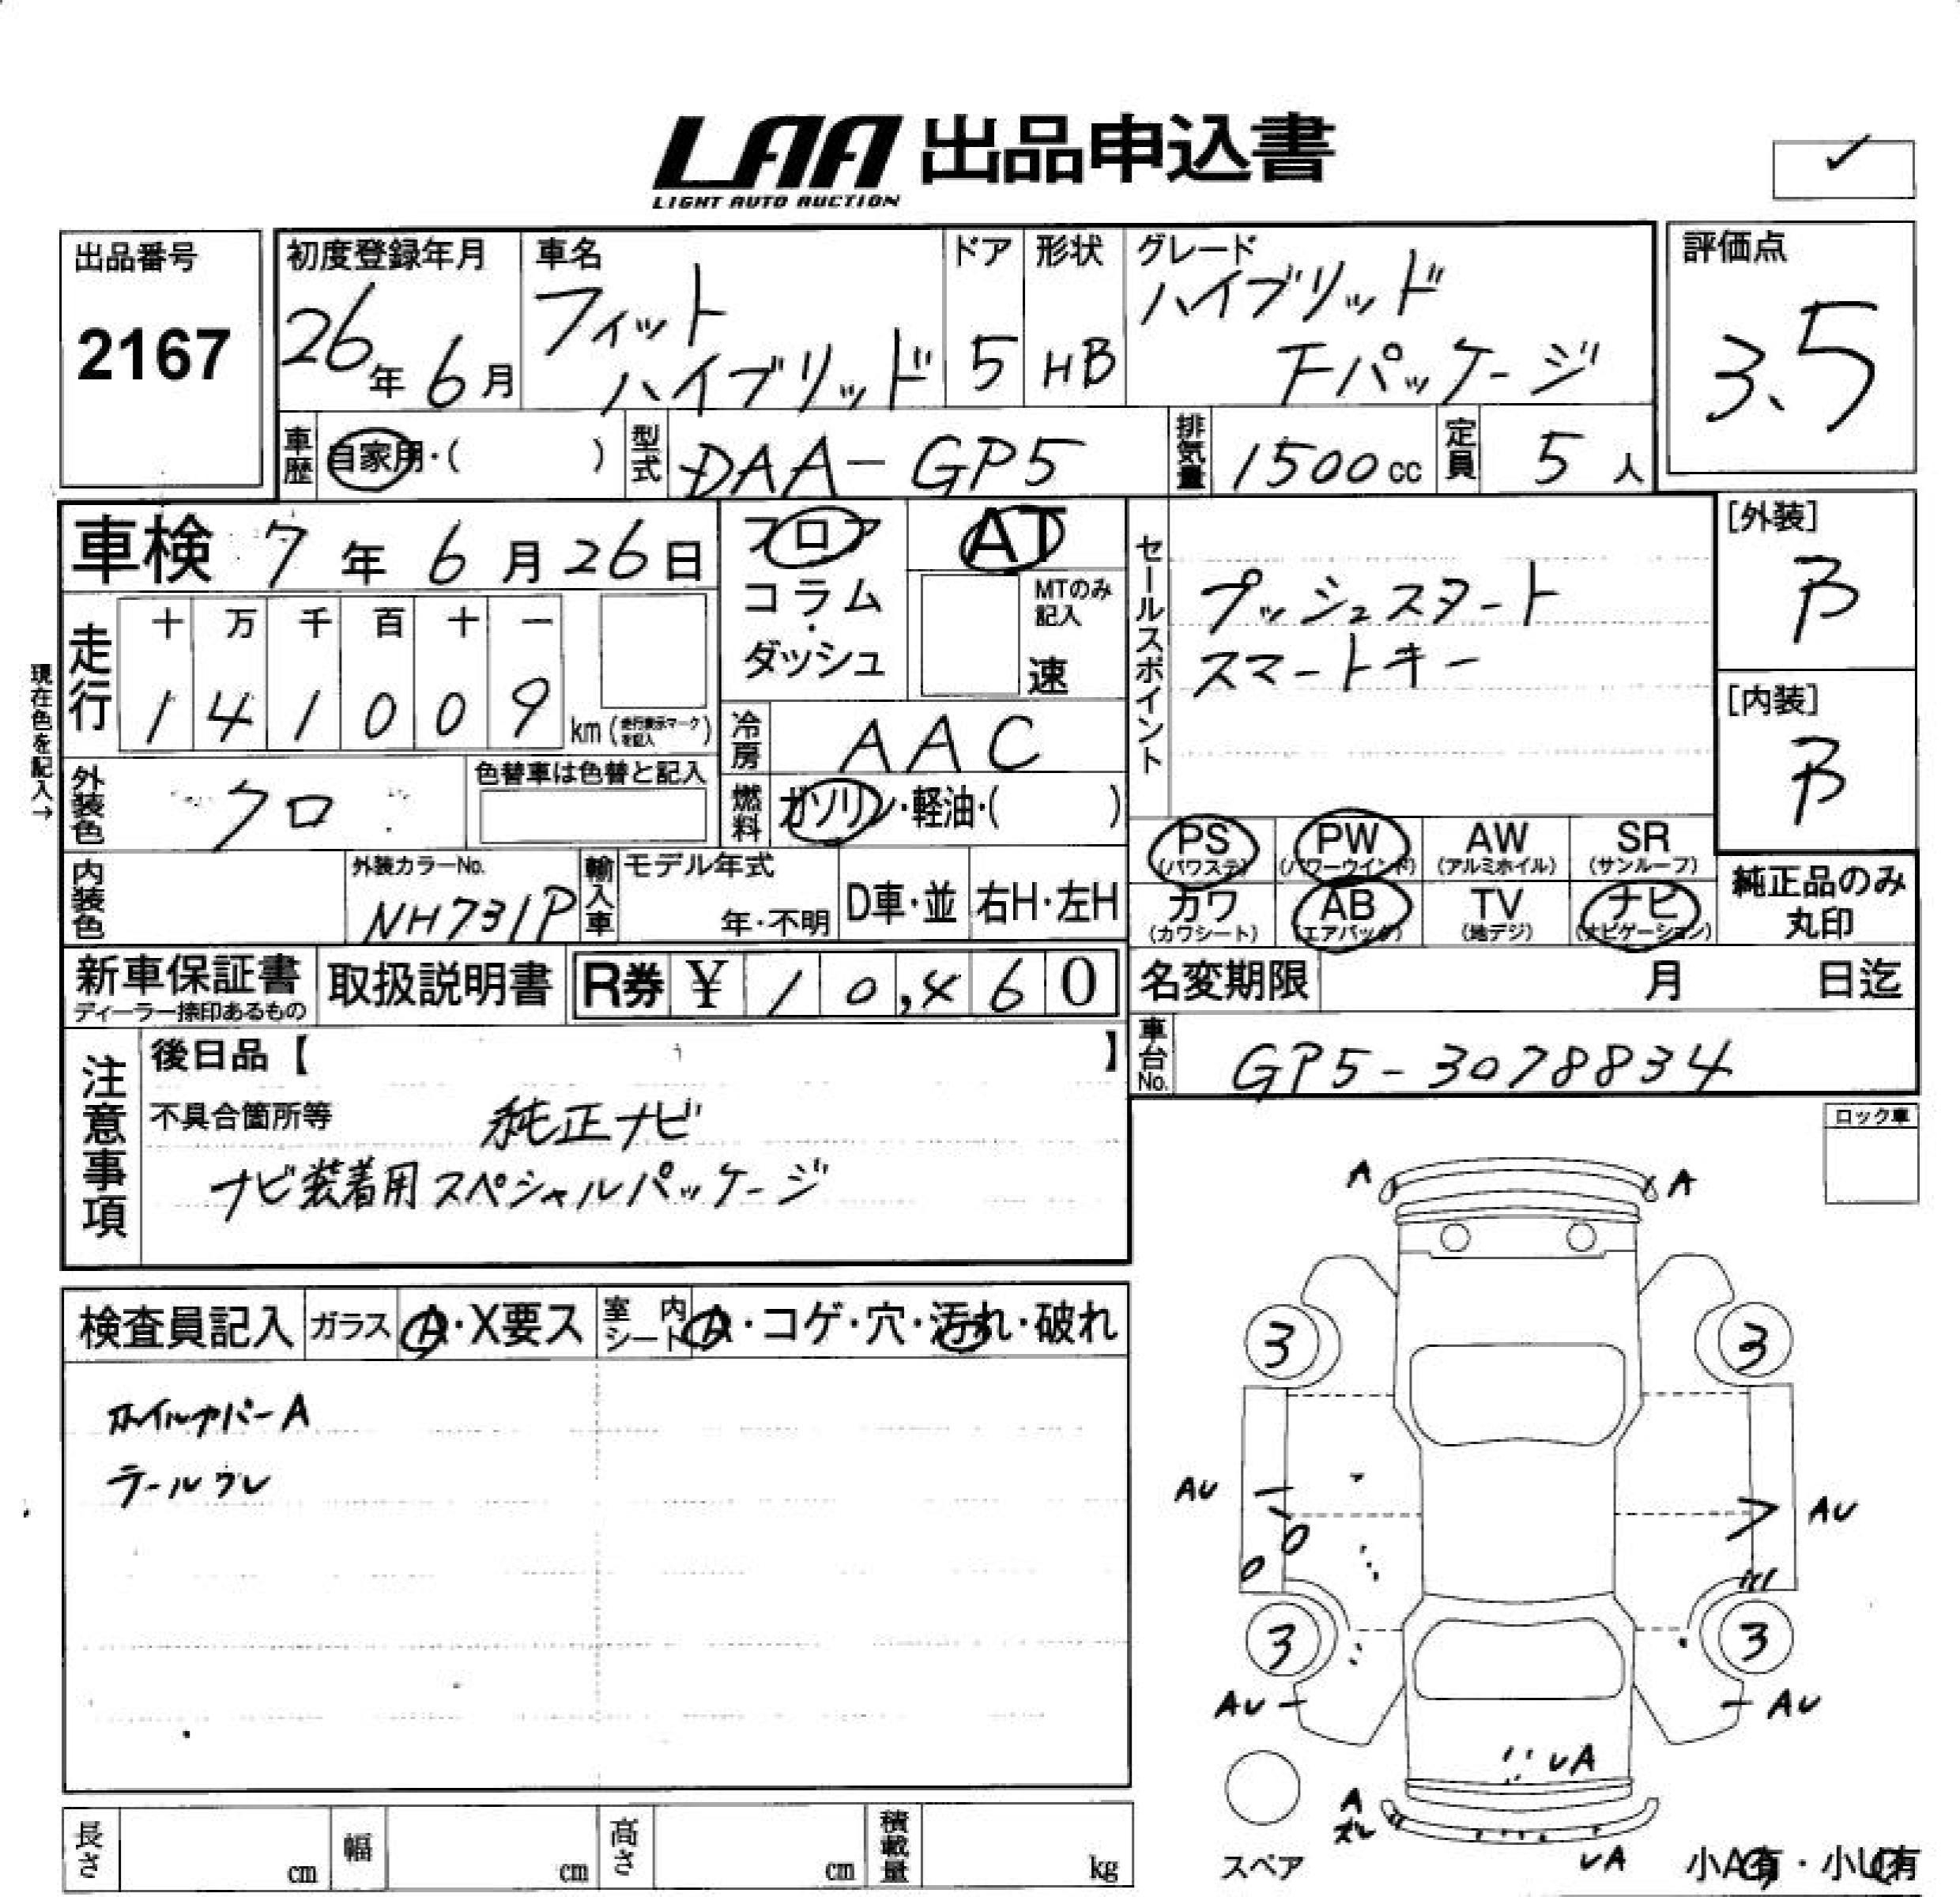 LAA 出品申込書
LIGHT AUTO AUCTION
出品番号
2167
初度登録年月
26年6月
車名
フィット
ハイブリッド
ドア
5
形状
HB
グレード
ハイブリッド
Fパッケージ
評価点
3.5
車歴
自家用・( )
型式
DAA-GP5
排気量
1500cc
定員
5人
車検 7年6月26日
フロア
コラム
・
ダッシュ
AT
MTのみ
記入
速
セールスポイント
プッシュスタート
スマートキー
[外装]
B
[内装]
B
現在色を記入→
走行
十 万 千 百 十 一
1 4 1 0 0 9
km (走行表示マークを記入)
冷房
AAC
外装色
クロ
色替車は色替と記入
燃料
ガソリン・軽油・( )
PS
(パワステ)
PW
(パワーウインド)
AW
(アルミホイル)
SR
(サンルーフ)
内装色
外装カラーNo.
NH731P
輸入車
モデル年式
年・不明
D車・並
右H・左H
カワ
(カワシート)
AB
(エアバック)
TV
(地デジ)
ナビ
(ナビゲーション)
純正品のみ
丸印
新車保証書
ディーラー捺印あるもの
取扱説明書
R券 ¥ 10,460
名変期限 月 日迄
車台No.
GP5-3078834
注意事項
後日品【 】
不具合箇所等
純正ナビ
ナビ装着用スペシャルパッケージ
ロック車
検査員記入
ガラス
A・X要ス
室内
シート
A・コゲ・穴・汚れ・破れ
ホイルカバーA
テールワレ
A A
3 3
AU AU
3 3
AU AU
UA
A
ズレ
UA
スペア
小A有・小U有
長さ cm
幅 cm
高さ cm
積載量 kg